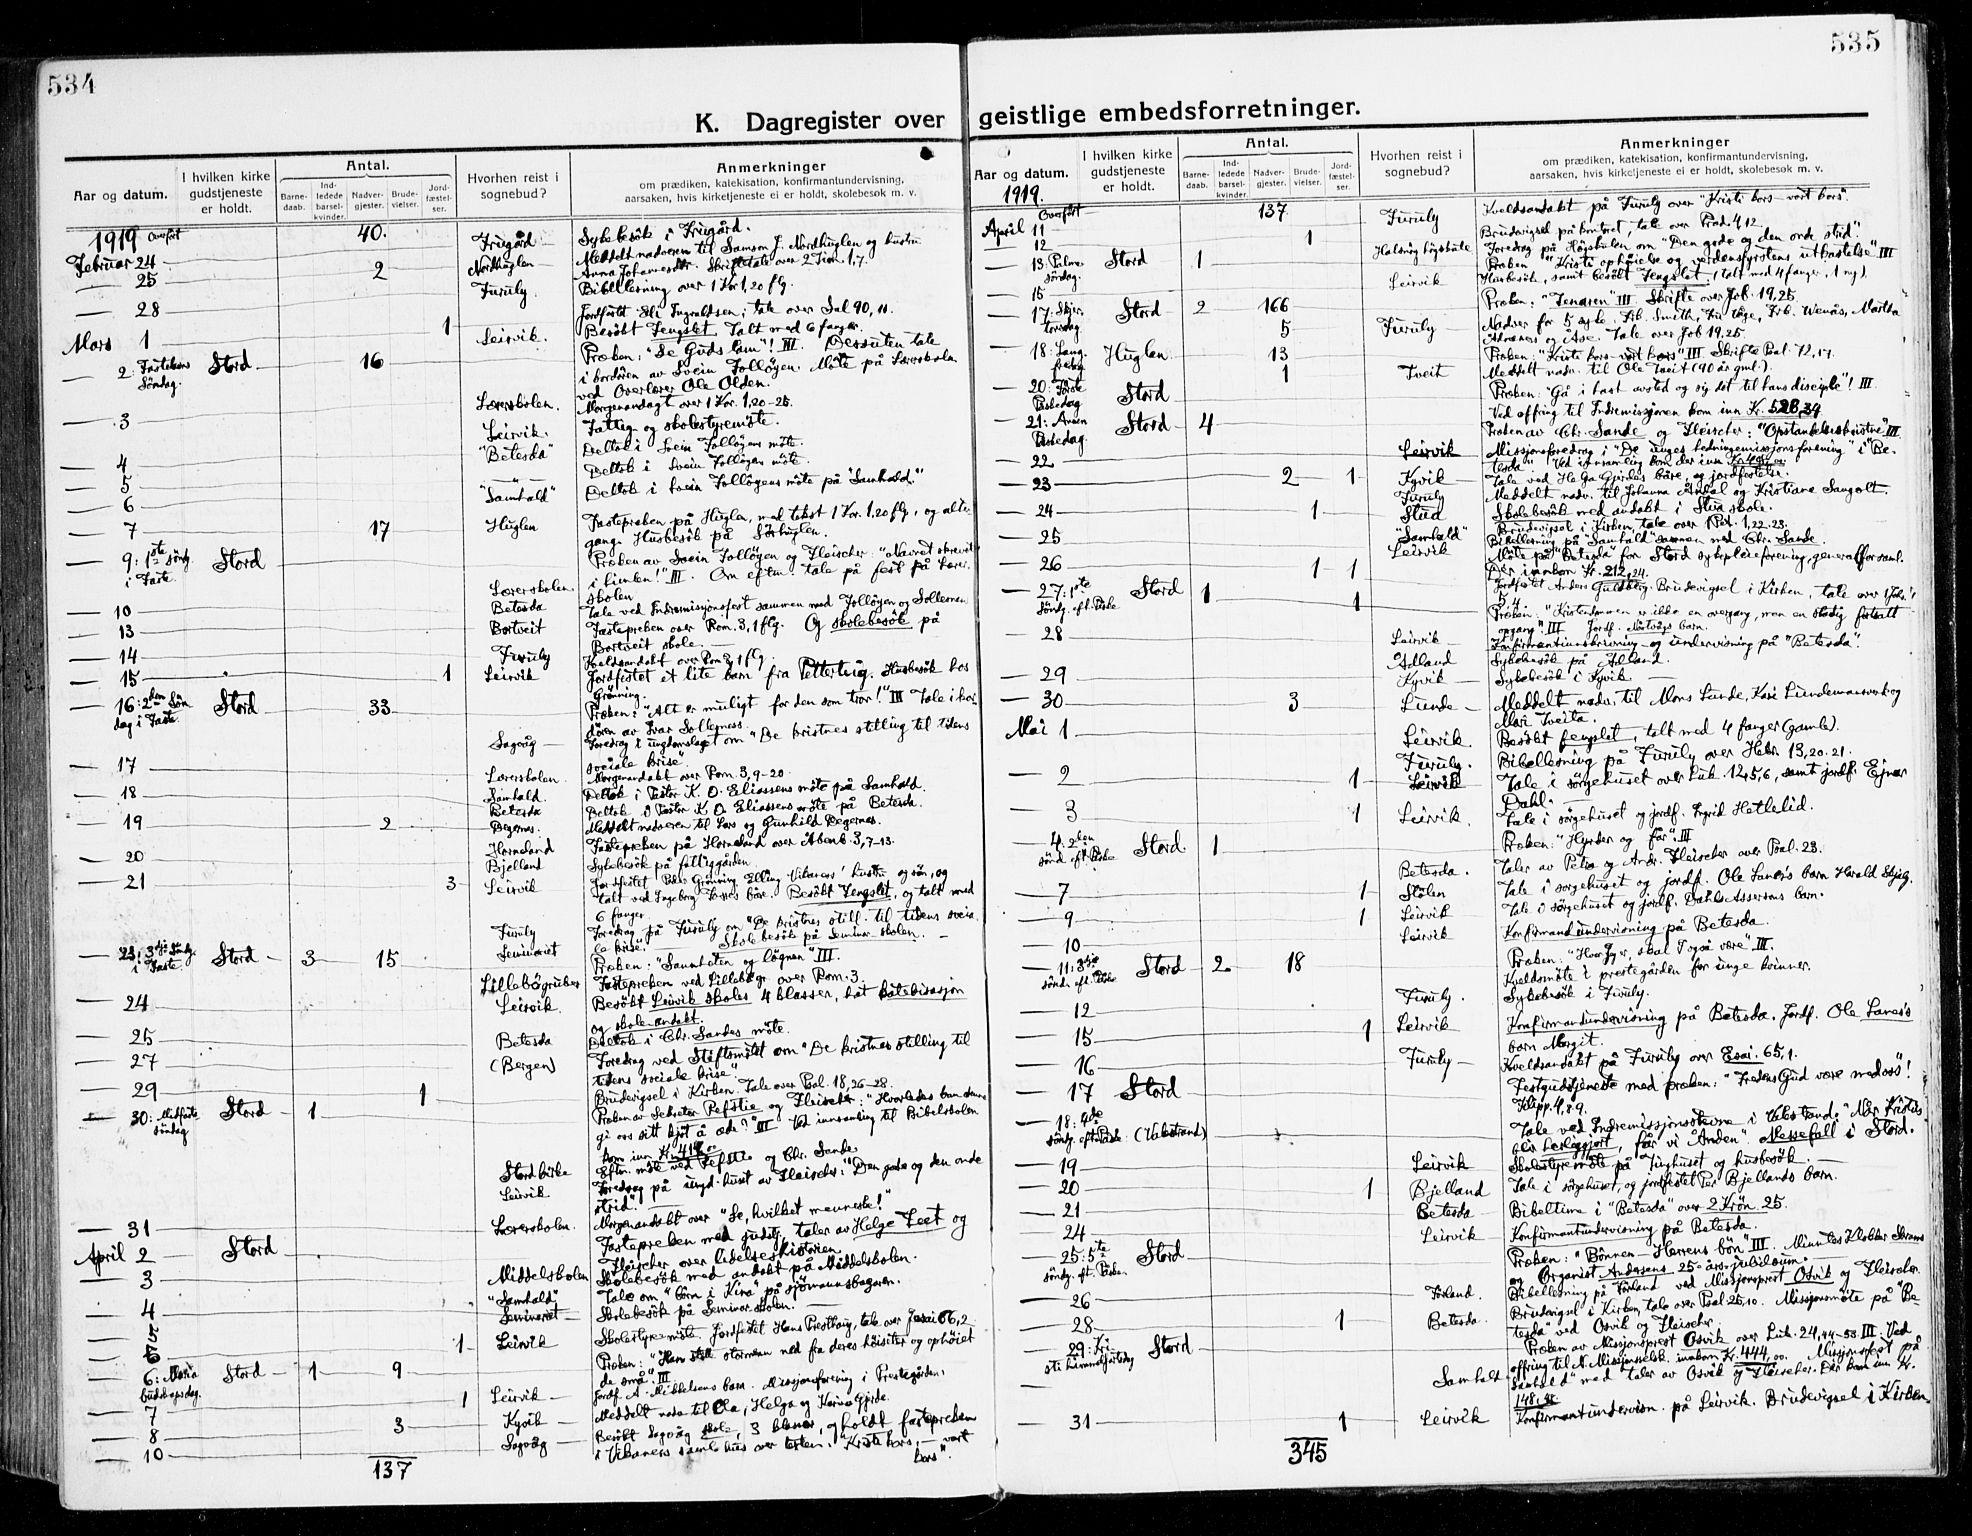 534
K. Dagregister over
Aar og datum.
I hvilken kirke gudstjeneste er holdt.
Antal.
Barne-daab.
Ind-ledede barsel-kvinder.
Nadver-gjester.
Brude-vielser.
Jord-fæstel-ser.
Hvorhen reist i sognebud?
Anmerkninger
om prædiken, katekisation, konfirmantundervisning,
aarsaken, hvis kirketjeneste ei er holdt, skolebesøk m. v.
1919 Overført 40.
Februar 24 Frugård Sykebesök i Frugård.
— 25 2 Nordhuglen Meddelt nadveren til Samson J. Nordhuglen og hustru
Anna Johannesdtr. Skriftetale over 2 Tim. 1,7.
— 28 Furuly Bibellesning over 1 Kor. 1,20 flg.
Mars 1 1 Jordfestet Eli Ingvaldsen; tale over Sal 90, 11.
Leirvik. Besökt Fengslet. Talt med 6 fanger.
— 2: Fastelavns Söndag. Stord 16 Preken: "Se Guds lam"! III Dessuten tale
i kordören av Svein Follöyen. Möte på Lærerskolen
ved Overlærer Ole Olden.
— 3 Lærerskolen. Morgenandagt over 1 Kor. 1,20-25.
Leirvik. Fattig og skolestyremöte.
— 4 "Betesda" Deltok i Svein Follöyens möte.
— 5 — " — Deltok i Svein Follöyens möte.
— 6 "Samhald" Deltok i Svein Follöyens möte på "Samhald".
— 7 17 Huglen Fastepreken på Huglen, med tekst 1 Kor. 1,20 flg, og alter-
gang. Husbesök på Sörhuglen.
— 9: 1ste sönd. i Faste. Stord Preken av Svein Follöyen og Fleischer: "Navnet skrevet
i himlen!" III. Om eftm. tale på fest på Lærer-
— 10 Lærerskolen. skolen
— 13 Betesda Tale ved Indremissjonsfest sammen med Follöyen og Sollesnes
— 14 Bortveit Fastepreken over Rom. 3,1 flg. Og skolebesök på
Bortveit skole.
Furuly Kveldsandakt over Rom 3,1 flg.
— 15 1 Leirvik Jordfestet et lite barn fra Petterteig. Husbesök hos
Grönning.
— 16: 2den Sön dag i Faste. Stord 33 Preken: "Alt er muligt for den som tror!" III Tale i kor-
dören av Ivar Sollesnes.
Sagvåg Foredrag i ungdomslaget om "De kristnes stilling til tidens
sociale krise".
— 17 Lærerskolen. Morgenandakt over Rom. 3,9-20.
— 18 Samhald. Deltok i Pastor K. O. Eliassens möte på Samhald.
Betesda Deltok i Pastor K. O. Eliassens möte på Betesda.
— 19 2 Degernes. Meddelt nadveren til Lars og Gunhild Degernes.
— 20 Horneland Fastepreken på Horneland over Åbenb. 3,7-13.
Bjelland Sykebesök på fattiggården.
— 21 3 Leirvik Jordfestet Peder Grönning, Elling Vikanes' hustru og sön, og
talt ved Ingeborg Tornes båre. Besökt Fengslet, og talt med
6 fanger.
Furuly Foredrag på Furuly om "De kristnes still. til tidens socia-
Seminaret le krise". Skolebesök på Seminarskolen.
— 23: 3dje Sönd. i Faste. Stord 3 15 Preken: "Sannheten og lögnen" III.
Lillebögruber Fastepreken ved Lillebögr. over Rom. 3.
— 24 Leirvik. Besökt Leirvik skoles 4 klasser, hat katekisasjon
og skole-andakt.
— 25 Betesda Deltok i Chr. Sandes möte.
— 27 (Bergen) Foredrag ved Stiftsmötet om "De kristnes stilling til
tidens sociale krise".
— 29 1 Brudevigsel i Kirken. Tale over Psal. 18,26-28.
— 30: Midfaste söndag Stord 1 Preken av Sekretær Refstie og Fleischer: "Hvorledes kan denne
gi oss sitt kjöt å æde?" III Ved innsamling til Bibelskolen
kom inn Kr. 414,00
Stord kirke Eftm. möte ved Refstie og Chr. Sande.
Leirvik Foredrag på ungd.huset av Fleischer: "Den gode og den onde
strid".
— 31 Lærerskolen. Morgenandakt over "Se, hvilket menneske!"
April 2 Stord Fastepreken med gudstj., taler av Helge Feet og
Fleischer over lidelseshistorien.
— 3 Middelskolen Skolebesök med andakt på Middelskolen.
"Samhald" Tale om "barn i Kina" på sjömannsbasaren.
— 4 Seminaret Skolebesök på Seminarskolen.
— 5 1 Leirvik Skolestyremöte. Jordfestet Hans Presthaug, tale over Jesai 66,2
— 6: Maria budskapsdag. Stord 1 9 Preken: "Han stött stormenn ned fra deres höisæter og ophöiet
de små". III
— 7 1 Leirvik Jordf. A. Mikkelsens barn. Missjonsforening i Prestegården.
— 8 3 Kyvik Meddelt nadv. til Ola, Helga og Karina Gjerde.
— 10 Sagvåg Besökt Sagvåg skole, 3 klasser, og holdt fastepreken
i Vikanes samlehus over teksten: "Kristi kors, — vort
kors".
137
535
geistlige embedsforretninger.
Aar og datum.
I hvilken kirke gudstjeneste er holdt.
Antal.
Barne-daab.
Ind-ledede barsel-kvinder.
Nadver-gjester.
Brude-vielser.
Jord-fæstel-ser.
Hvorhen reist i sognebud?
Anmerkninger
om prædiken, katekisation, konfirmantundervisning,
aarsaken, hvis kirketjeneste ei er holdt, skolebesøk m. v.
1919.
Overfört 137
April 11 Furuly Kveldsandakt på Furuly over "Kristi kors — vort kors".
— 12 1 Brudevigsel på kontoret, tale over Præd. 4,12.
Halsnøy högskule Foredrag på Högskulen om "Den gode og den onde strid".
— 13: Palme söndag. Stord 1 Preken "Kristi ophöielse og verdensfyrstens utkastelse" III
— 15 Leirvik Husbesök, samt besökt Fengslet (talt med 4 fanger, 1 ny).
— 17: Skjær torsdag. Stord 2 166 Preken: "Tenaren" III Skrifte over Job. 19,25.
5 Furuly Nadver for 5 syke. Frk. Smith, Fru Uge, Frk. Wenås, Martha
Adnanes og Åse. Tale over Job 19,25.
— 18: Lang fredag Huglen 13 Preken: "Kristi kors — vort kors" III Skrifte Psal. 72,17.
1 Tveit Meddelt nadv. til Ole Tveit (90 år gml.).
— 20: Förste Påskedag Stord Preken: "Gå i hast avsted og sig det til hans disciple"! III
Ved offring til Indremissjonen kom inn Kr. 528,34
— 21: Annen Påskedag. Stord 4 Preken av Chr. Sande og Fleischer: "Opstandelseskristne" III
— 22 Leirvik Missjonsforedrag i "De unges hedningemissjonsforening" i "Be-
tesda". Ved innsamling kom der inn Kr.
— 23 2 1 Kyvik Tale ved Helga Gjerdes båre, og jordfestelse.
Furuly Meddelt nadv. til Johanna Årdal og Kristiane Saugolt.
— 24 1 Stud Skolebesök med andakt i Stua skole.
Brudevigsel i Kirken, tale over 1 Pet. 1,22-23.
— 25 "Samhald" Bibellesning på "Samhald" sammen med Chr. Sande.
Leirvik Möte på "Betesda" for Stord sykepleieforening, generalforsaml.
— 26 1 1 Der innkom Kr. 212,24.
Jordfestet Anders Guldberg. Brudevigsel i Kirken, tale over 1 Joh.
— 27: 1ste Söndg. eft. Påske Stord 1 1 Preken: "Kristendommen er ikke en overgang, men en stadig fortsatt
opgang" III Jordf. Nastvågs barn.
— 28 Leirvik Konfirmantinnskrivning og undervisning på "Betesda".
Adland Sykebesök på Adland.
— 29 Kyvik Sykebesök i Kyvik
— 30 3 Lunde Meddelt nadv. til Mons Lunde, Kari Lundemansverk og
Mari Tveita.
Mai 1 Leirvik. Besökt fengslet, talt med 4 fanger (gamle).
Furuly. Bibellesning på Furuly over Hebr. 13,20.21.
— 2 1 Leirvik Tale i sörgehuset over Luk. 12,5,6, samt jordf. Ejnar
Dahl.
— 3 1 Leirvik. Tale i sörgehuset og jordf. Ingrid Hetlelid.
— 4. 2den sönd. eft. Påske Stord. 1 Preken: "Hyrder og får". III
Betesda. Taler av Petra og Andr. Fleischer over Psal. 23.
— 7 1 Stölen Tale i sorgehuset og jordf. Ole Lanes's barn Harald Skjeg.
— 9 1 Leirvik Tale i sörgehuset og jordf. Dahls Assersons barn.
— 10 Leirvik Konfirmandundervisning på Betesda.
— 11: 3dje sönd. eft. Påske Stord 2 18 Preken: "Hvor jeg er, skal I også være" III.
Kveldsmöte i prestegården for unge kvinner.
— 12 Furuly. Sykebesök i Furuly.
— 15 1 Leirvik Konfirmandundervisning på Betesda. Jordf. Ole Lanes's
barn Margit.
— 16 Furuly Kveldsandakt på Furuly over Esai. 65,1.
— 17 Stord Festgudstjeneste med preken: "Fredens Gud være med oss"!
Filipp. 4,8-9.
— 18: 4de söndg. eft. Påske (Valestrand) Tale ved Indremissjonsstevne i Valestrand. "Når Kristus
blir herliggjort, får vi Ånden". Messefall i Stord.
— 19 Leirvik Skolestyremöte på Tinghuset og husbesök.
— 20 1 Bjelland Tale i sörgehuset, og jordfestet Per Bjellands barn.
— 21 Betesda Bibeltime i "Betesda" over 2 Krön. 25.
— 24 Leirvik Konfirmantundervisning på Betesda.
— 25: 5te söndg. eft. Påske. Stord Preken: "Bönnen — Herrens bön" III. Minntes Klokker
og Organist Andersens 25-års-jubilæum.
— 26 Förland. Bibellesning på Förland ved Missjonsprest Osvik og Fleischer
— 28 1 Betesda. Brudevigsel i Kirken, tale over Psal 25,10. Missjonsmöte på "Be-
tesda" ved Osvik og Fleischer.
— 29: Kri sti himmelfartsdag Stord Preken av Missjonsprest Osvik over Luk. 24,44-53. III. Ved
offring til N. Missjonsselsk. innkom Kr. 444,00. Missjonsfest på
Samhald "Samhald" med taler av Osvik og Fleischer. Der kom inn Kr.
148,
— 31 1 Leirvik Konfirmantundervisn. på Leirvik. Brudevigsel i Kirken.
345